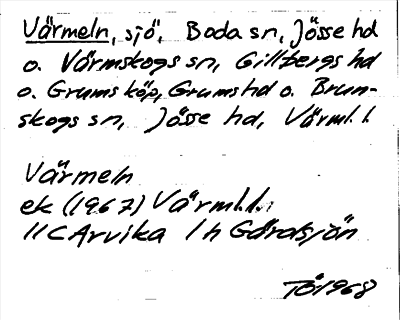 Värmeln, sjö, Boda sn, Jösse hd
o. Värmskogs sn, Gillbergs hd
o. Grums köp, Grums hd o. Brun-
skogs sn, Jösse hd, Värml. l.
Värmeln
ek (1967) Värml.l.
11C Arvika 1h Gårdsjön
TÖ 1968